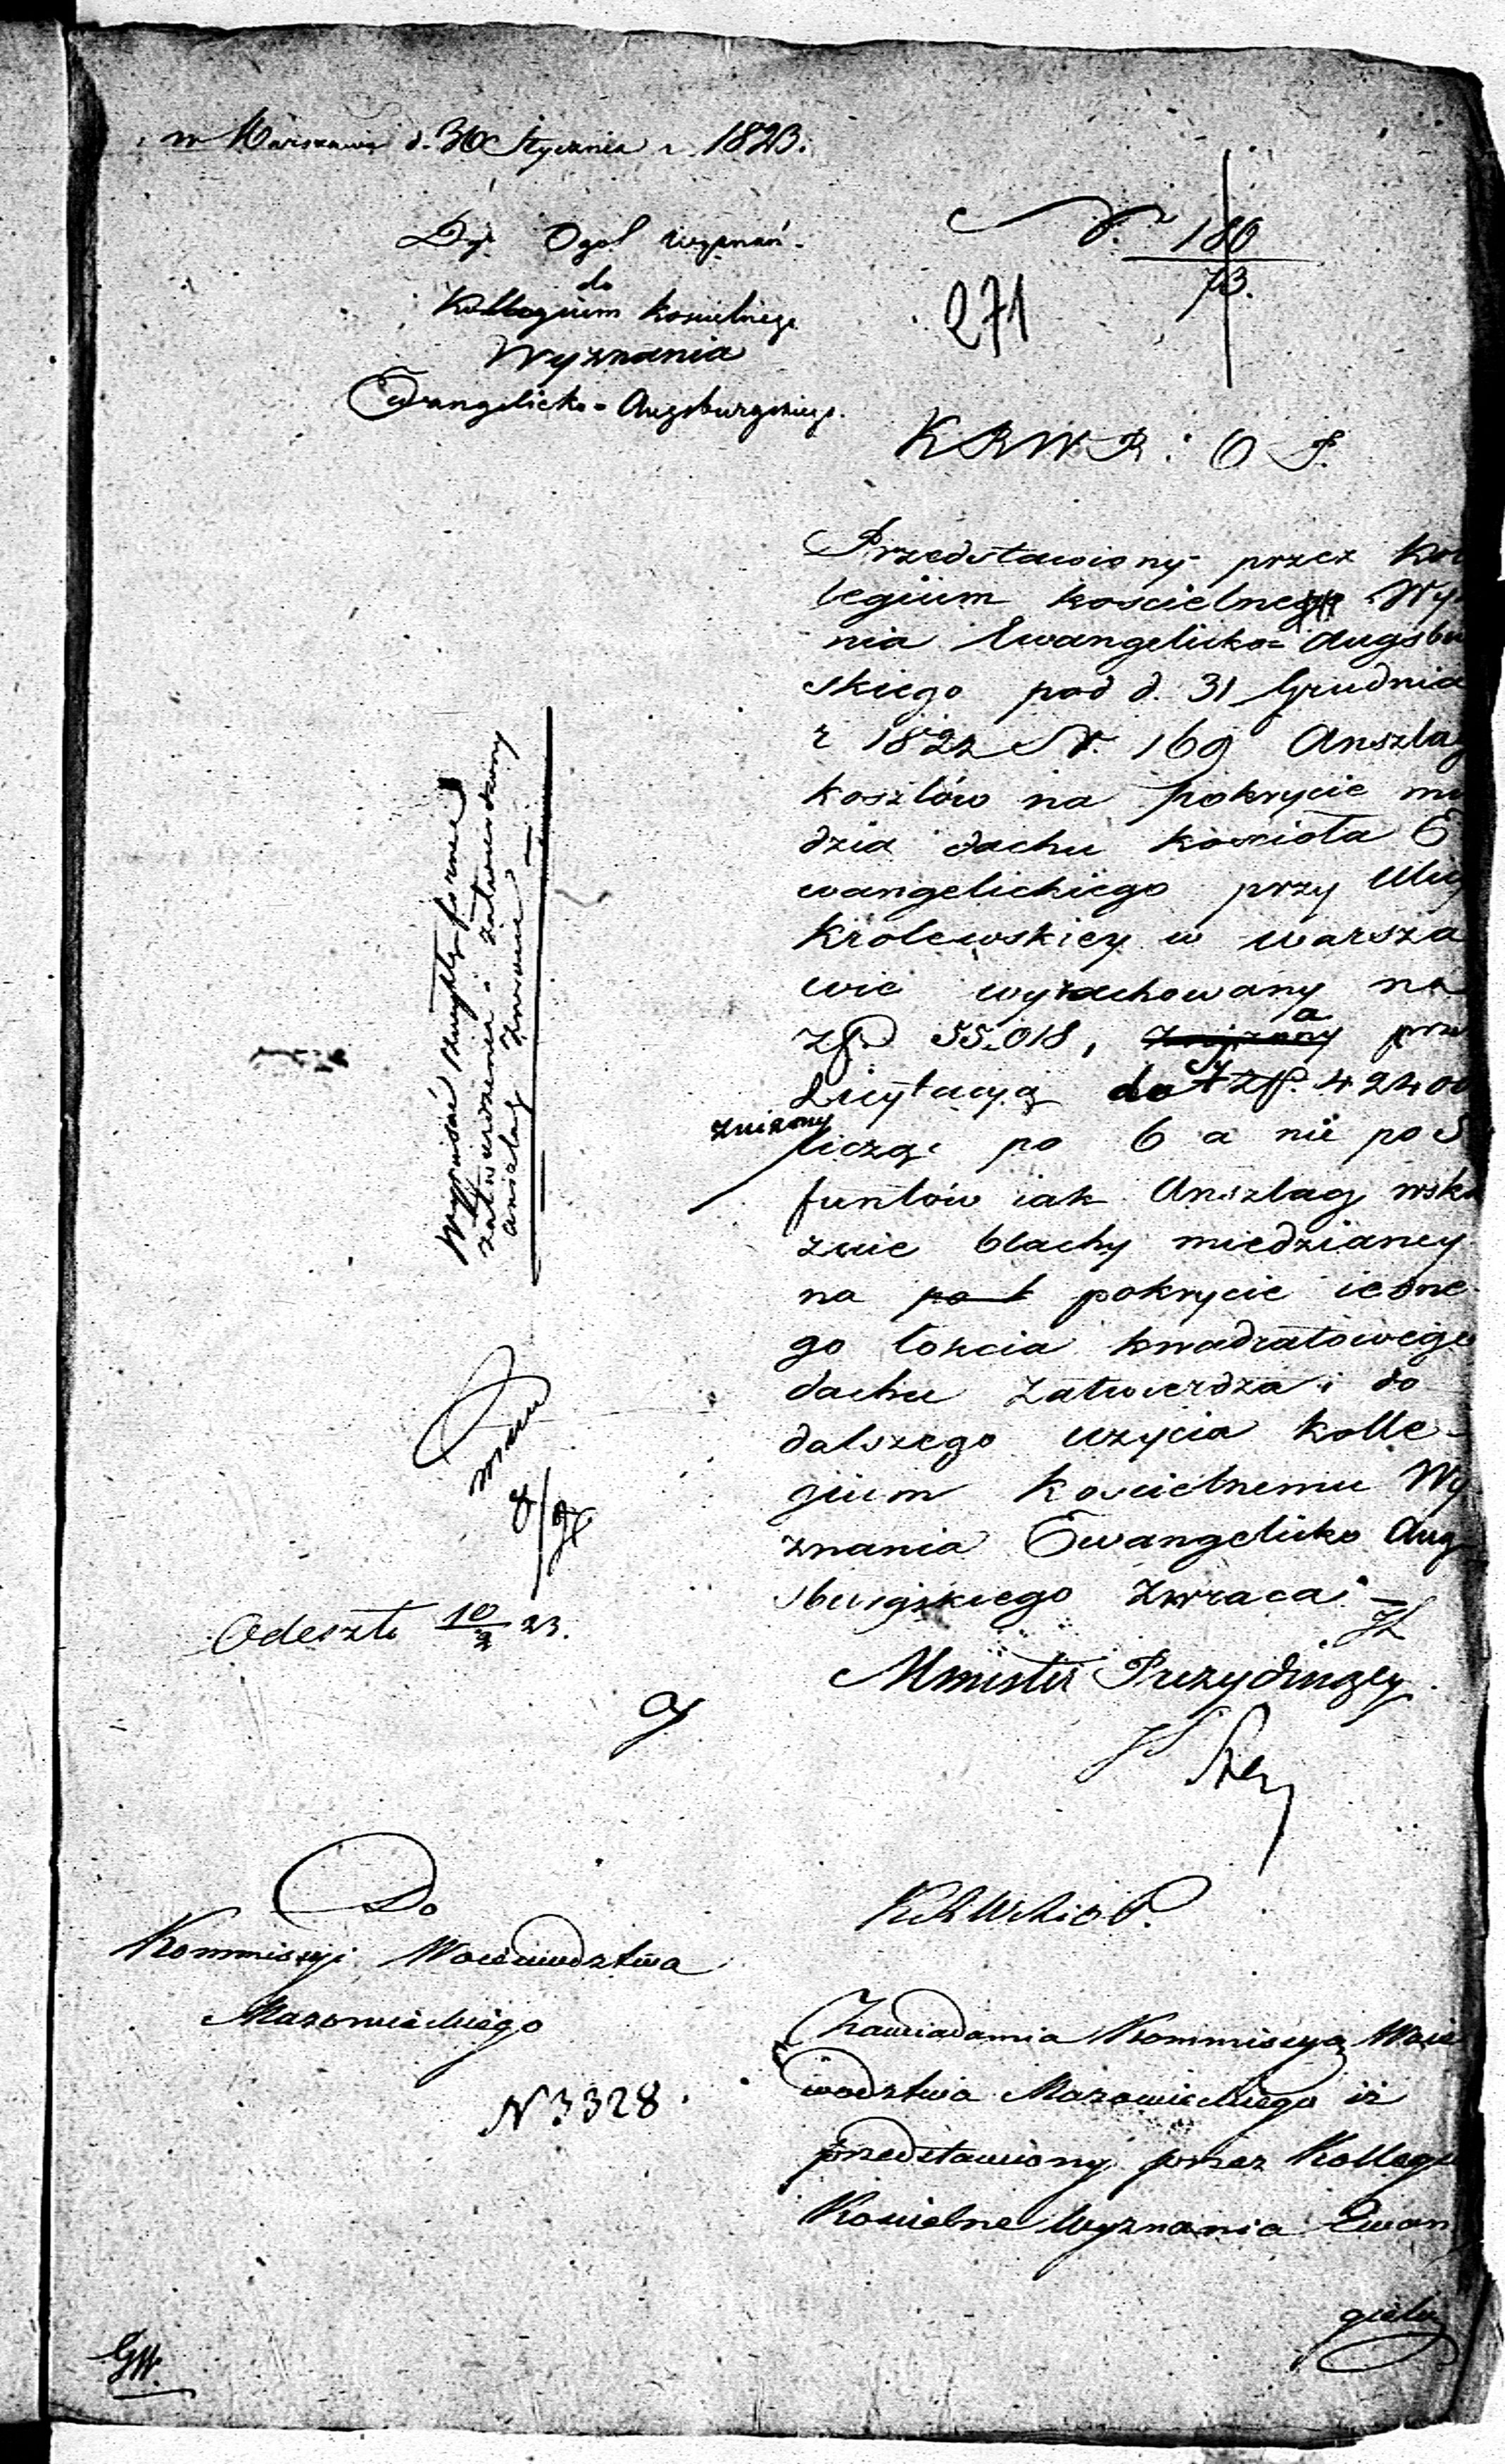 w Warszawie d. 30 Stycznia r. 1823.
Dyr Ogol wyznań.
do
Kollegium kościelnego
Wyznania
Ewangelicko-Augsburgskiego.
Nr 180
73.
271
KRWR: O P.
Przedstawiony przez Kol
legium kościelne Wyz
nia Ewangelicko= Augsbur
skiego pod d. 31 Grudnia
r 1822 Nr. 169 Anszlag
kosztów na pokrycie mie
dzią dachu kościoła E
wangelickiego przy Ulicy
Królewskiey w Warsza
wie wyrachowany na
zł 55.018, a przez
Licytacyą do zł. 42400
zniżony
licząc po 6 a nie po 8
funtów iak Anszlag wska
zuie blachy miedzianey
na pokrycie iedne-
go łokcia kwadratowego
dachu zatwierdza i do
dalszego użycia kolle-
gium kościelnemu Wy
znania Ewangelicko Aug
sburgskiego zwraca. –
Minister Prezyduiący
Wypisać zwykłą formę
zatwierdzenia i zatwierdzony
anszlag zwrócić
Odeszło 10/2 23.
Do
Kommissyi Woiewództwa
Mazowieckiego
N 3328.
KRWRiOP.
Zawiadamia Kommissyą Woie
wództwa Mazowieckiego iż
przedstawiony przez Kollegi
Kościelne Wyznania Ewan
gielic
GW.